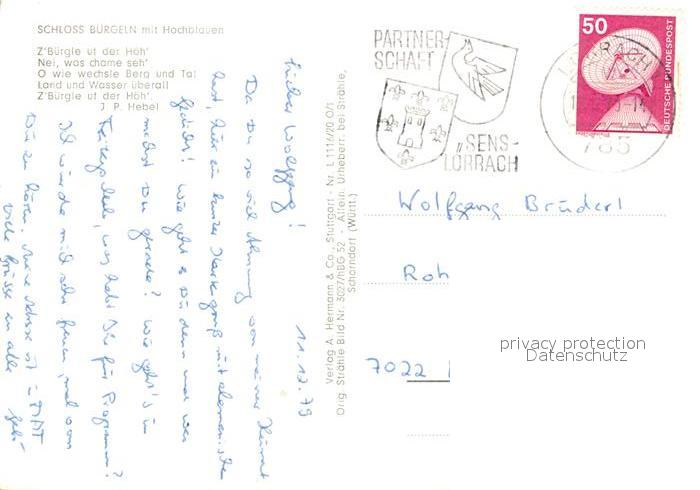 SCHLOSS BÜRGELN mit Hochblauen
Z'Bürgle uf der Höh'
Nei, was chame seh'
O wie wechsle Berg und Tal
Land und Wasser überall
Z'Bürgle uf der Höh'.
J. P. Hebel
11.12.79
Lieber Wolfgang!
Da Du so viel Ahnung von meiner Heimat
hast, hier ein kurzer Kartengruß mit
Wie geht es Dir denn und was
machst Du gerade? Wie geht's in
was habt Ihr für Programm?
Ich würde mich sehr freuen, mal von
Dir zu hören. Meine Adresse ist
viele Grüße an alle
Verlag A. Hermann & Co., Stuttgart · Nr. L 1116/20 O/1
Orig. Strähle Bild Nr. 3027/hBG 52 · Allein. Urheberr. bei Strähle,
Schorndorf (Württ.)
PARTNER-
SCHAFT
SENS-
LÖRRACH
LÖRRACH
785
50
DEUTSCHE BUNDESPOST
Wolfgang Brüderl
Roh
7022
privacy protection
Datenschutz